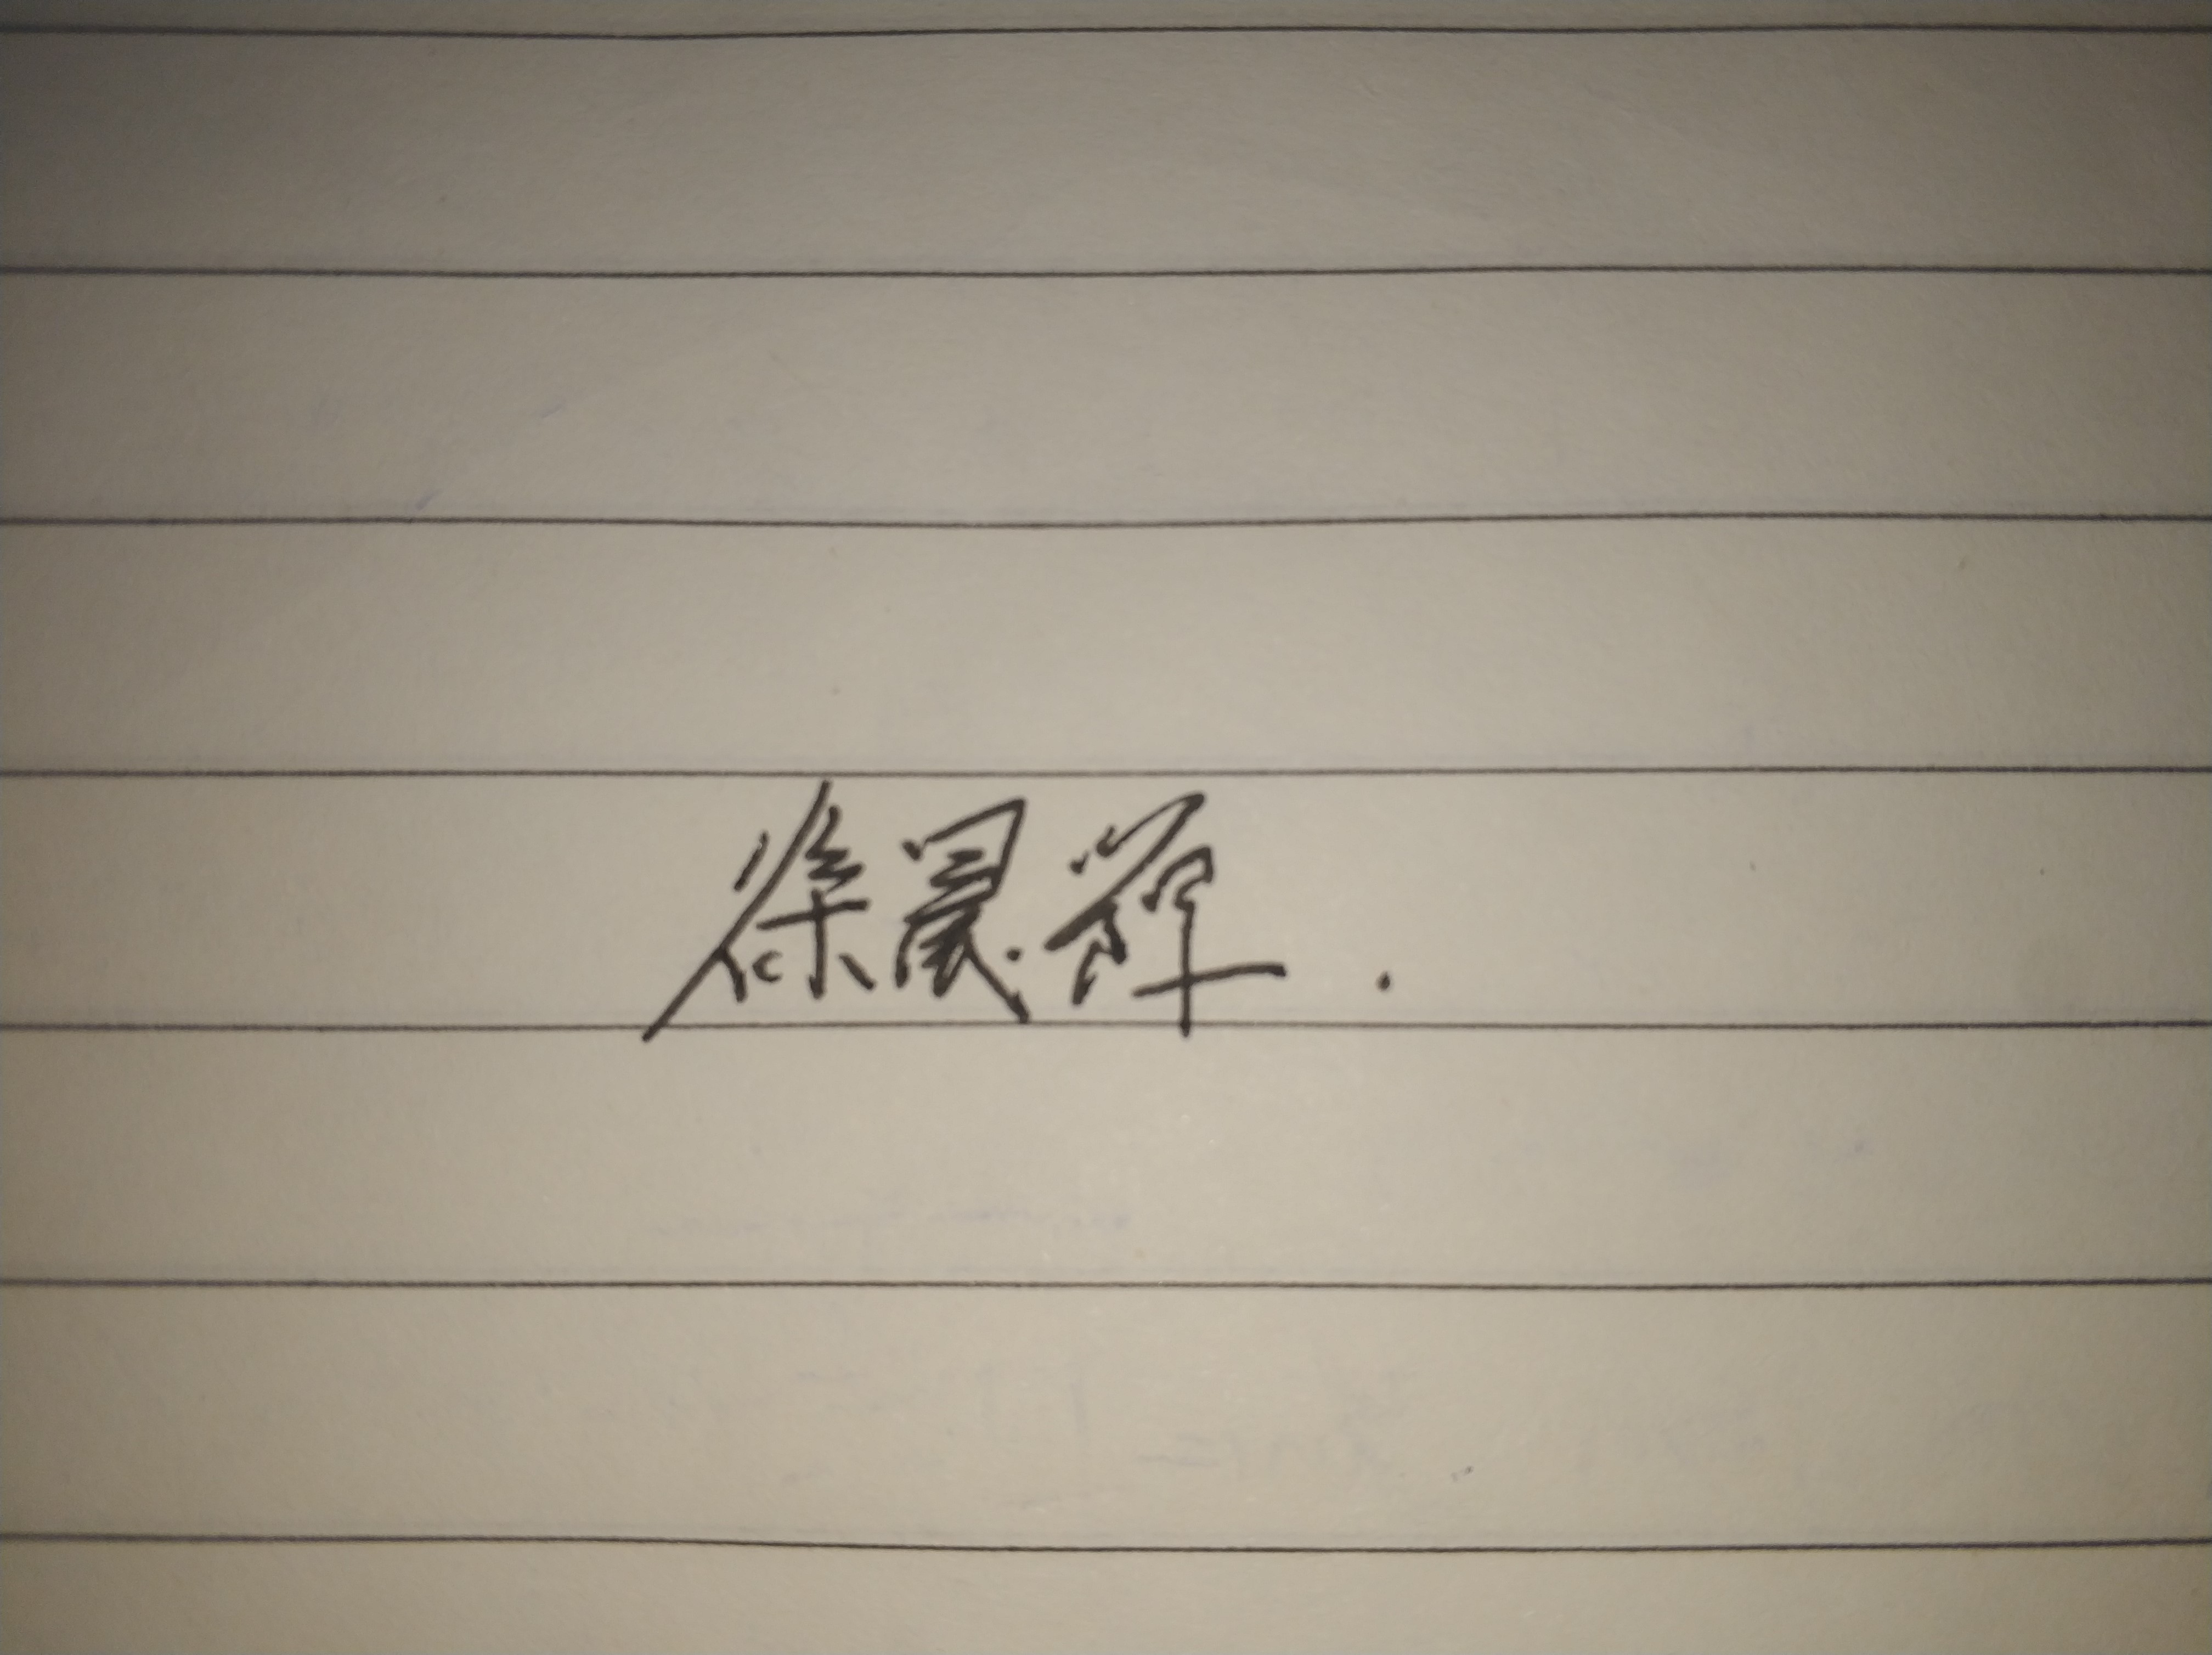 徐晨辉.